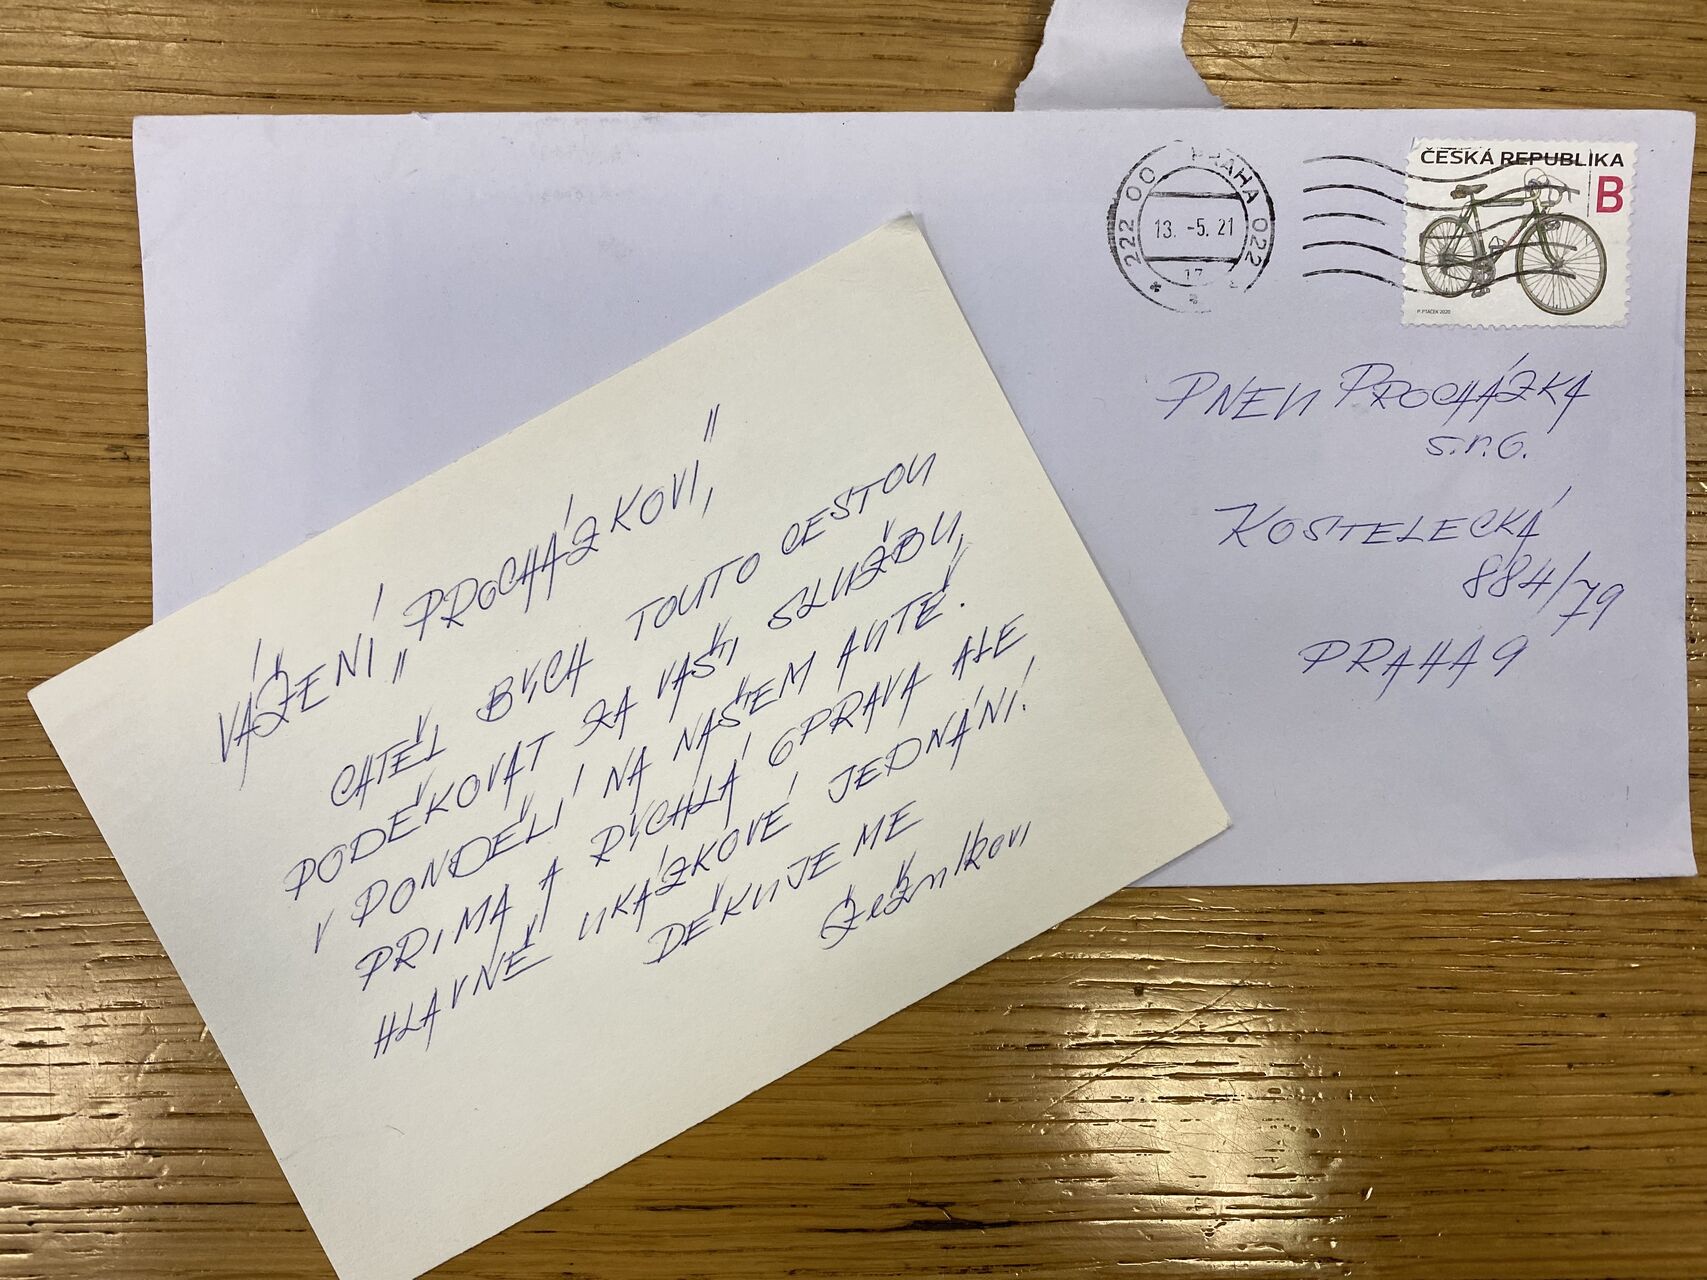 222 00 PRAHA 022
13. -5. 21
17
ČESKÁ REPUBLIKA
B
P. PTÁČEK 2020
PNEU PROCHÁZKA
s.r.o.
KOSTELECKÁ
884/79
PRAHA 9
VÁŽENÍ „PROCHÁZKOVI,"
CHTĚL BYCH TOUTO CESTOU
PODĚKOVAT ZA VAŠI SLUŽBU,
V PONDĚLÍ NA NAŠEM AUTĚ.
PRIMA A RYCHLÁ OPRAVA ALE
HLAVNĚ UKÁZKOVÉ JEDNÁNÍ.
DĚKUJEME